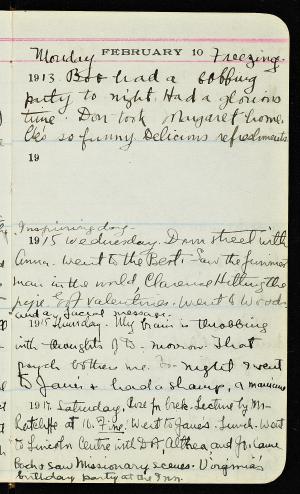 Monday FEBRUARY 10 Freezing.
1913 Bob had a bobbing
party to night. Had a glorious
time. Don took Margaret home.
He's so funny Delicious refreshments
19
Inspiring day.
1915 Wednesday. Down street with
Anna. Went to the Best. Saw the funniest
man in the world, Clarence Hitting the
pipe. Got valentines. Went to Woods
and ay facial massage.
1915 Thursday. My brain is throbbing
with thoughts of to-morrow. That
psych bothers me. To-night I went
to Jane's & had a shampoo, & manicure
1917. Saturday, Rose for brek. Lecture by Mr.
Ratcliffe at 10. Fine. Went to Jane's. Lunch. Went
to Lincoln Centre with Dot, Althea, and Jr. Came
back & saw Missionary scenes. Virginia's
birthday party at the Inn.